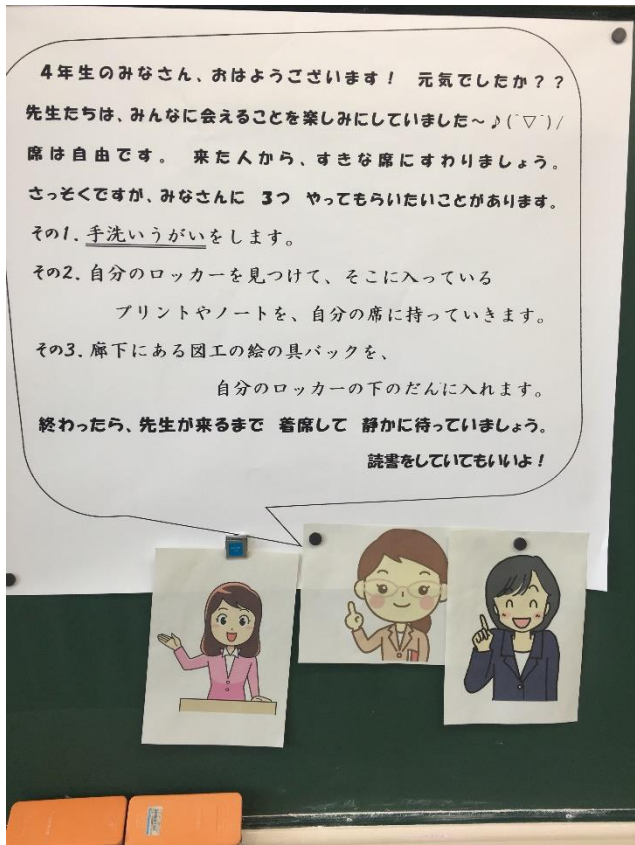 4年生のみなさん、おはようございます！　元気でしたか？？
先生たちは、みんなに会えることを楽しみにしていました～♪(´▽`)/
席は自由です。　来た人から、すきな席にすわりましょう。
さっそくですが、みなさんに　3つ　やってもらいたいことがあります。
その1．手洗いうがいをします。
その2．自分のロッカーを見つけて、そこに入っている
プリントやノートを、自分の席に持っていきます。
その3．廊下にある図工の絵の具バックを、
自分のロッカーの下のだんに入れます。
終わったら、先生が来るまで　着席して　静かに待っていましょう。
読書をしていてもいいよ！